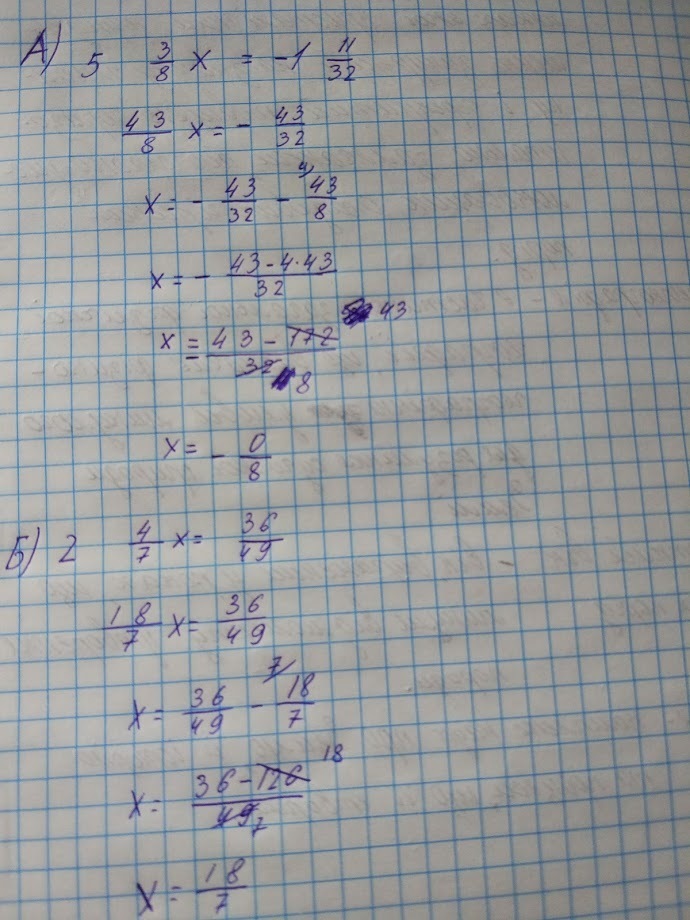 А) 5 3/8 x = -1 11/32
43/8 x = - 43/32
x = - 43/32 - 4/ 43/8
x = - 43-4·43/32
x = 43-172/32 43 8
x = - 0/8
Б) 2 4/7 x = 36/49
18/7 x = 36/49
x = 36/49 - 7/ 18/7
x = 36-126/49 18 7
x = 18/7